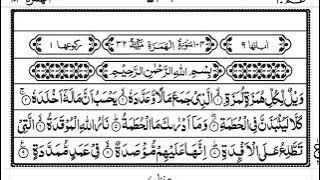 اٰیاتھا ۹ ۱۰۴ سُوْرَةُ الْهُمَزَةِ مَكِّيَّةٌ ۳۲ رکوعھا ۱
بِسْمِ اللهِ الرَّحْمٰنِ الرَّحِيْمِ
وَيْلٌ لِّكُلِّ هُمَزَةٍ لُّمَزَةِ ۙ ۝ الَّذِيْ جَمَعَ مَالًا وَّعَدَّدَهٗ ۙ ۝ يَحْسَبُ اَنَّ مَالَهٗٓ اَخْلَدَهٗ ۚ ۝
كَلَّا لَيُنْۢبَذَنَّ فِي الْحُطَمَةِ ۖ ۝ وَمَاۤ اَدْرٰىكَ مَا الْحُطَمَةُ ؕ ۝ نَارُ اللهِ الْمُوْقَدَةُ ۙ ۝ الَّتِيْ
تَطَّلِعُ عَلَى الْاَفْـِٕدَةِ ؕ ۝ اِنَّهَا عَلَيْهِمْ مُّؤْصَدَةٌ ۙ ۝ فِيْ عَمَدٍ مُّمَدَّدَةٍ ۠ ۝